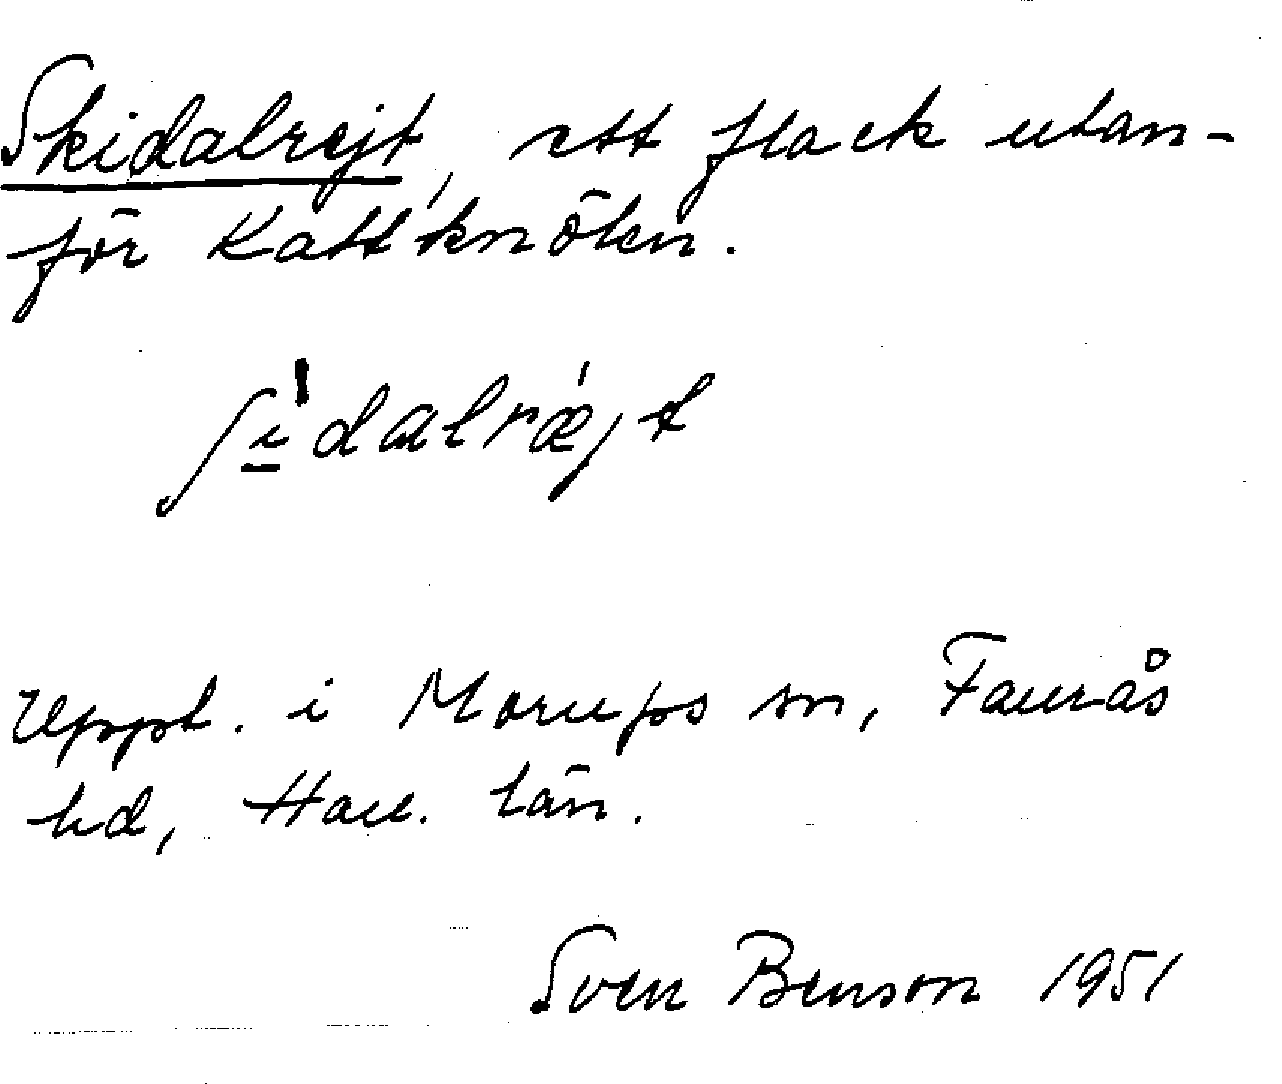 Skidalrejt, ett flack utan-
för Kattknölen.
ʃi̱'dalræ'jt
Uppt. i Morups sn, Faurås
hd, Hall. län.
Sven Benson 1951